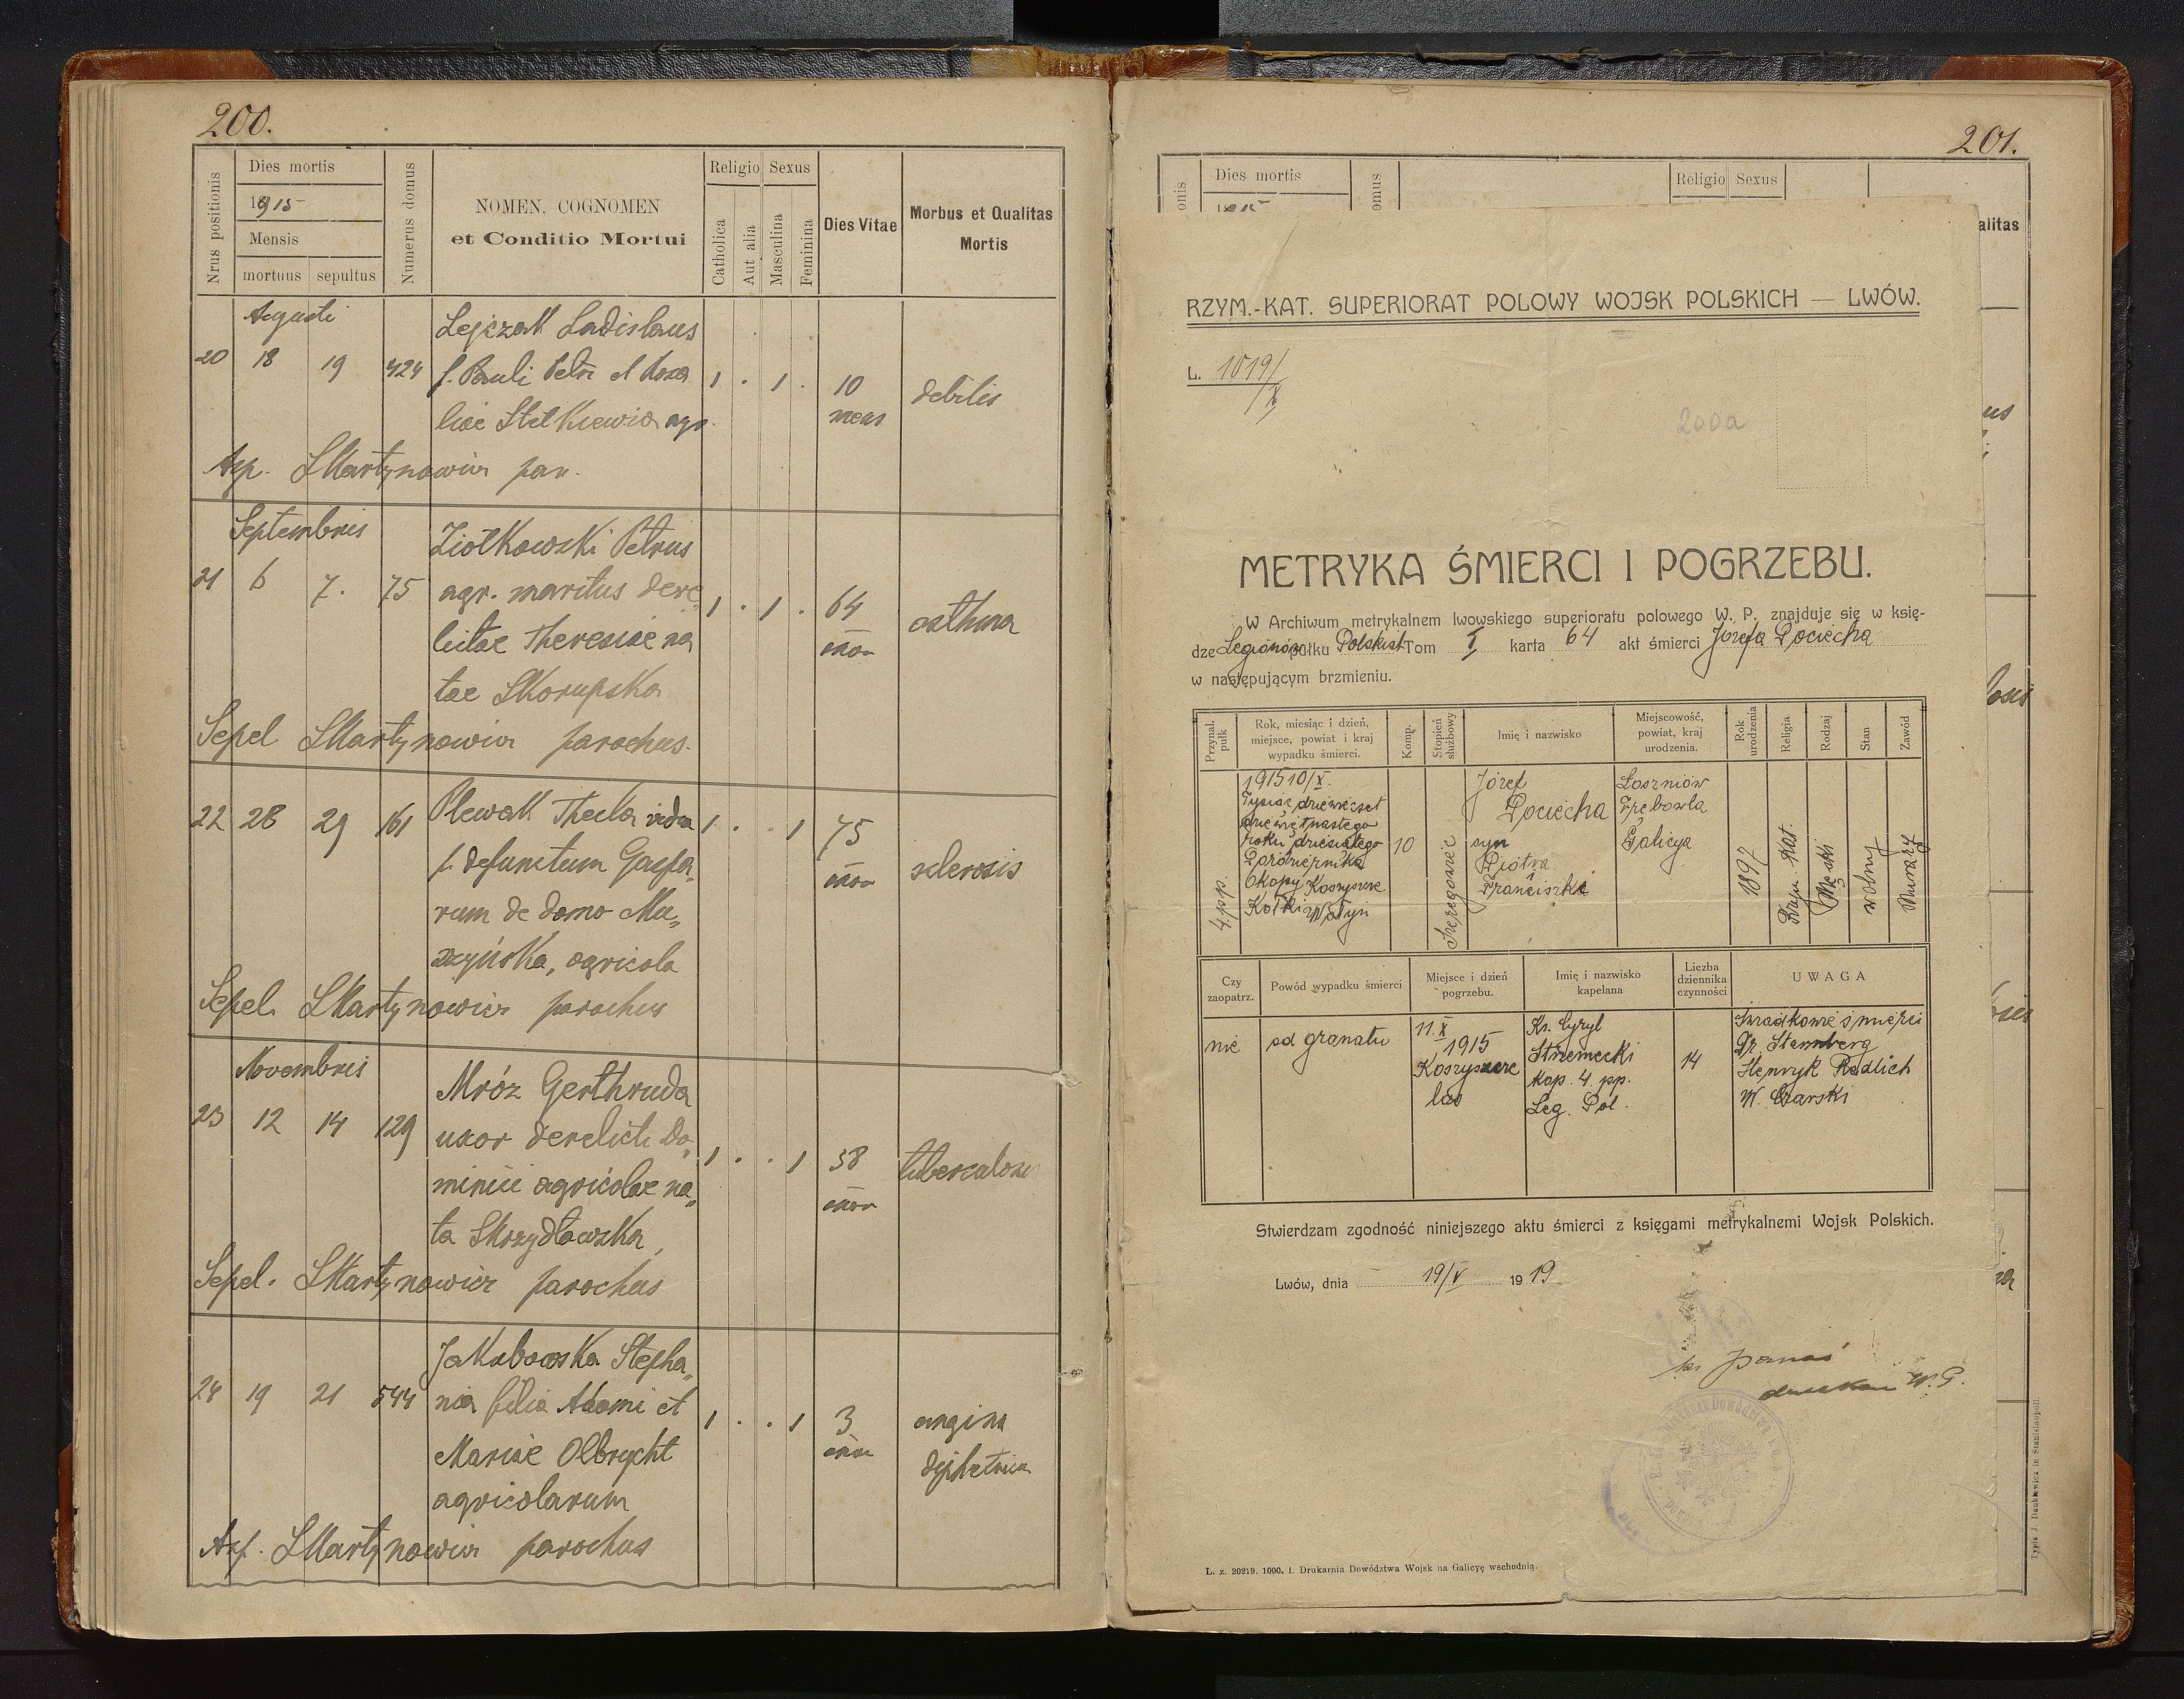 200.
Nrus positionis
Dies mortis
1915
Mensis
mortuus
sepultus
Numerus domus
NOMEN, COGNOMEN
et Conditio Mortui
Religio
Sexus
Catholica
Aut alia
Masculina
Feminina
Dies Vitae
Morbus et Qualitas
Mortis
Augusti
20 18 19 424
Lejczak Ladislaus
f. Pauli Petri et Rosa
liae Stelkiewicz agr.
1 . 1 .
10
mens
debilis
Asp. SMartynowicz par.
Septembris
21 6 7. 75
Ziółkowski Petrus
agr. maritus dere
lictae Theresiae na
tae Skorupska
1 . 1 .
64
ann
asthma
Sepel SMartynowicz parochus.
22 28 29 161
Plewak Thecla vidua
p. defunctum Gaspa,,
rum de domo Mu,,
szyńska, agricola
1 . . 1
75
ann
sclerosis
Sepel. SMartynowicz parochus
Novembris
23 12 14 129
Mróz Gerthruda
uxor derelicti Do,,
minici agricolae na,,
ta Skrzydłowska
1 . . 1
58
ann
tuberculosis
Sepel. SMartynowicz parochus
24 19 21 544
Jakubowska Stepha,,
nia filia Adami et
Mariae Olbrycht
agricolarum
1 . . 1
3
ann
angina
diphetrica
Asp. SMartynowicz parochus
201.
onis
Dies mortis
1915
omus
Religio
Sexus
alitas
RZYM.-KAT. SUPERIORAT POLOWY WOJSK POLSKICH — LWÓW.
L. 1019/
200a
METRYKA ŚMIERCI I POGRZEBU.
W Archiwum metrykalnem lwowskiego superioratu polowego W. P. znajduje się w księ-
dze Legionów pułku Polskich Tom I karta 64 akt śmierci Józefa Pociecha
w następującym brzmieniu.
Przynal. pułk
Rok, miesiąc i dzień,
miejsce, powiat i kraj
wypadku śmierci.
Komp.
Stopień służbowy
Imię i nazwisko
Miejscowość,
powiat, kraj
urodzenia.
Rok urodzenia
Religia
Rodzaj
Stan
Zawód
4. p.p.
1915 10/X.
Tysiąc dziewięćset
dziewiętnastego
roku dziesiątego
Października
Okopy Koszyszcze
Kołki Wołyń
10
Szeregowiec
Józef
Pociecha
syn
Piotra
Franciszki
Łoszniów
Trębowla
Galicya
1897
Rzym. kat.
Męski
wolny
Murarz
Czy
zaopatrz.
Powód wypadku śmierci
Miejsce i dzień
pogrzebu.
Imię i nazwisko
kapelana
Liczba
dziennika
czynności
UWAGA
nie
od granatu
11. X
1915
Koszyszcze
las
Ks. Cyryl
Strzemecki
kap. 4. pp.
Leg. Pol.
14
Świadkowie śmierci
Gz. Stannberg
Henryk Redlich
W. Ozarski
Stwierdzam zgodność niniejszego aktu śmierci z księgami metrykalnemi Wojsk Polskich.
Lwów, dnia 19/V 1919
ks Panaś
dziekan W.P.
L. z. 20219. 1000. I. Drukarnia Dowództwa Wojsk na Galicyę wschodnią.
Typis J. Dankiewicz in Stanislaopoli.